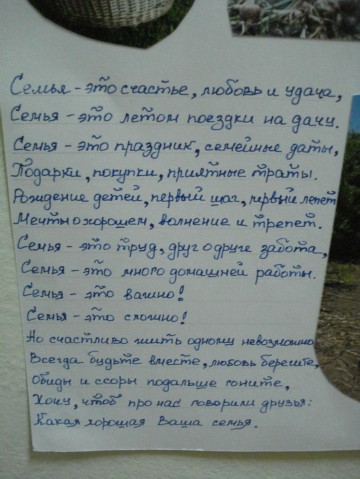 Семья - это счастье, любовь и удача,
Семья - это летом поездки на дачу.
Семья - это праздник, семейные даты,
Подарки, покупки, приятные траты.
Рождение детей, первый шаг, первый лепет
Мечты о хорошем, волнение и трепет.
Семья - это труд, друг о друге забота,
Семья - это много домашней работы.
Семья - это важно!
Семья - это сложно!
Но счастливо жить одному невозможно
Всегда будьте вместе, любовь берегите,
Обиды и ссоры подальше гоните,
Хочу, чтоб про нас говорили друзья:
Какая хорошая Ваша семья.